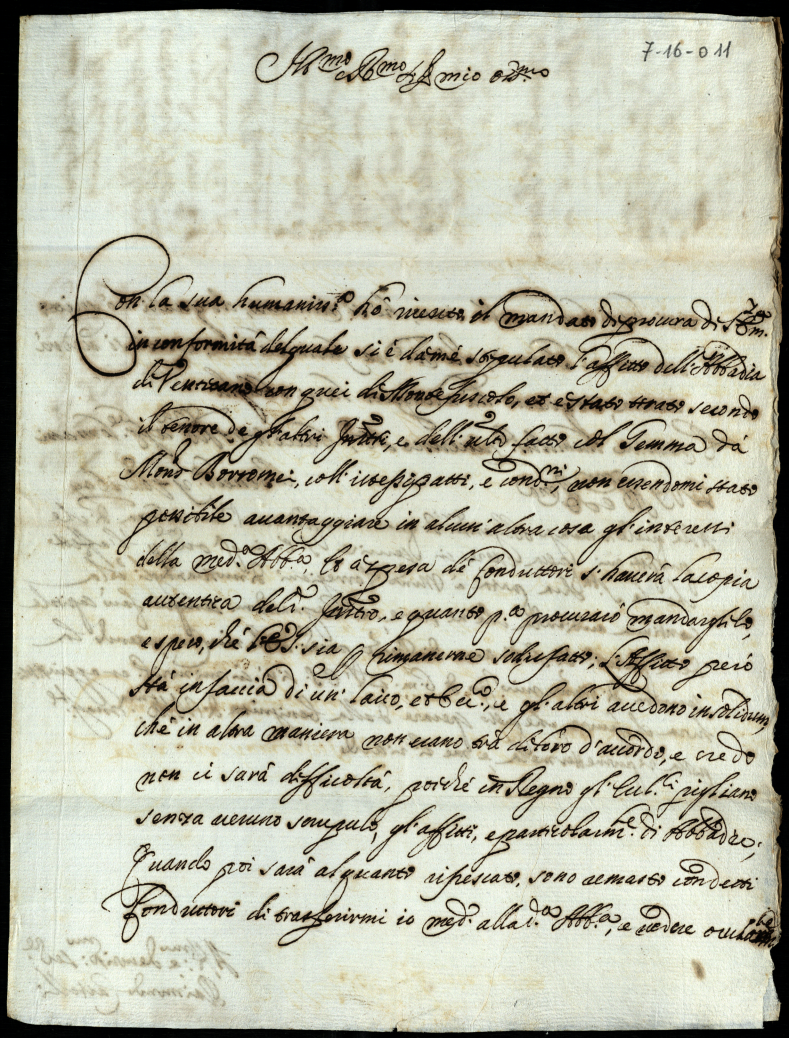 7-16-011
Ill.mo R.mo Sig.r mio oss.mo
Con la sua humaniss.a hò riceuto il mandato di procura di S. Em.za
in conformità del quale si è da mè stipulato l'affitto dell'Abbadia
di Venticano con quei di Montefuscolo, et è stato tirato secondo
il tenore de gl'altri Instr.ti, e dell'ult.o fatto col Gemma dà
Mons.r Borromei, coll'istessi patti, e condni, non essendomi stato
possibile auantaggiare in alcun'altra cosa gl'interessi
della med.a Abb.a. Et à spesa de Conduttori s'hauerà la copia
autentica del d.o Instr.o, e quanto p.a procurarò mandargliela,
e spero, chè sia rimanerne sodisfatto; L'Affitto però
stà in faccia di un laico, et gl'altri accedono in solidum,
chè in altra maniera non erano trà di loro d'accordo, e credo
non ci sarà difficoltà, poiché in Regno gl'Eccl.ci pigliano
senza ueruno scrupulo, gl'affitti, e particolarm.te di Abbadie;
Quando poi sarà alquanto rifrescato, sono remasto con detti
Conduttori di trasferirmi io med.o alla d.a Abb.a, e uedere ocularm.te